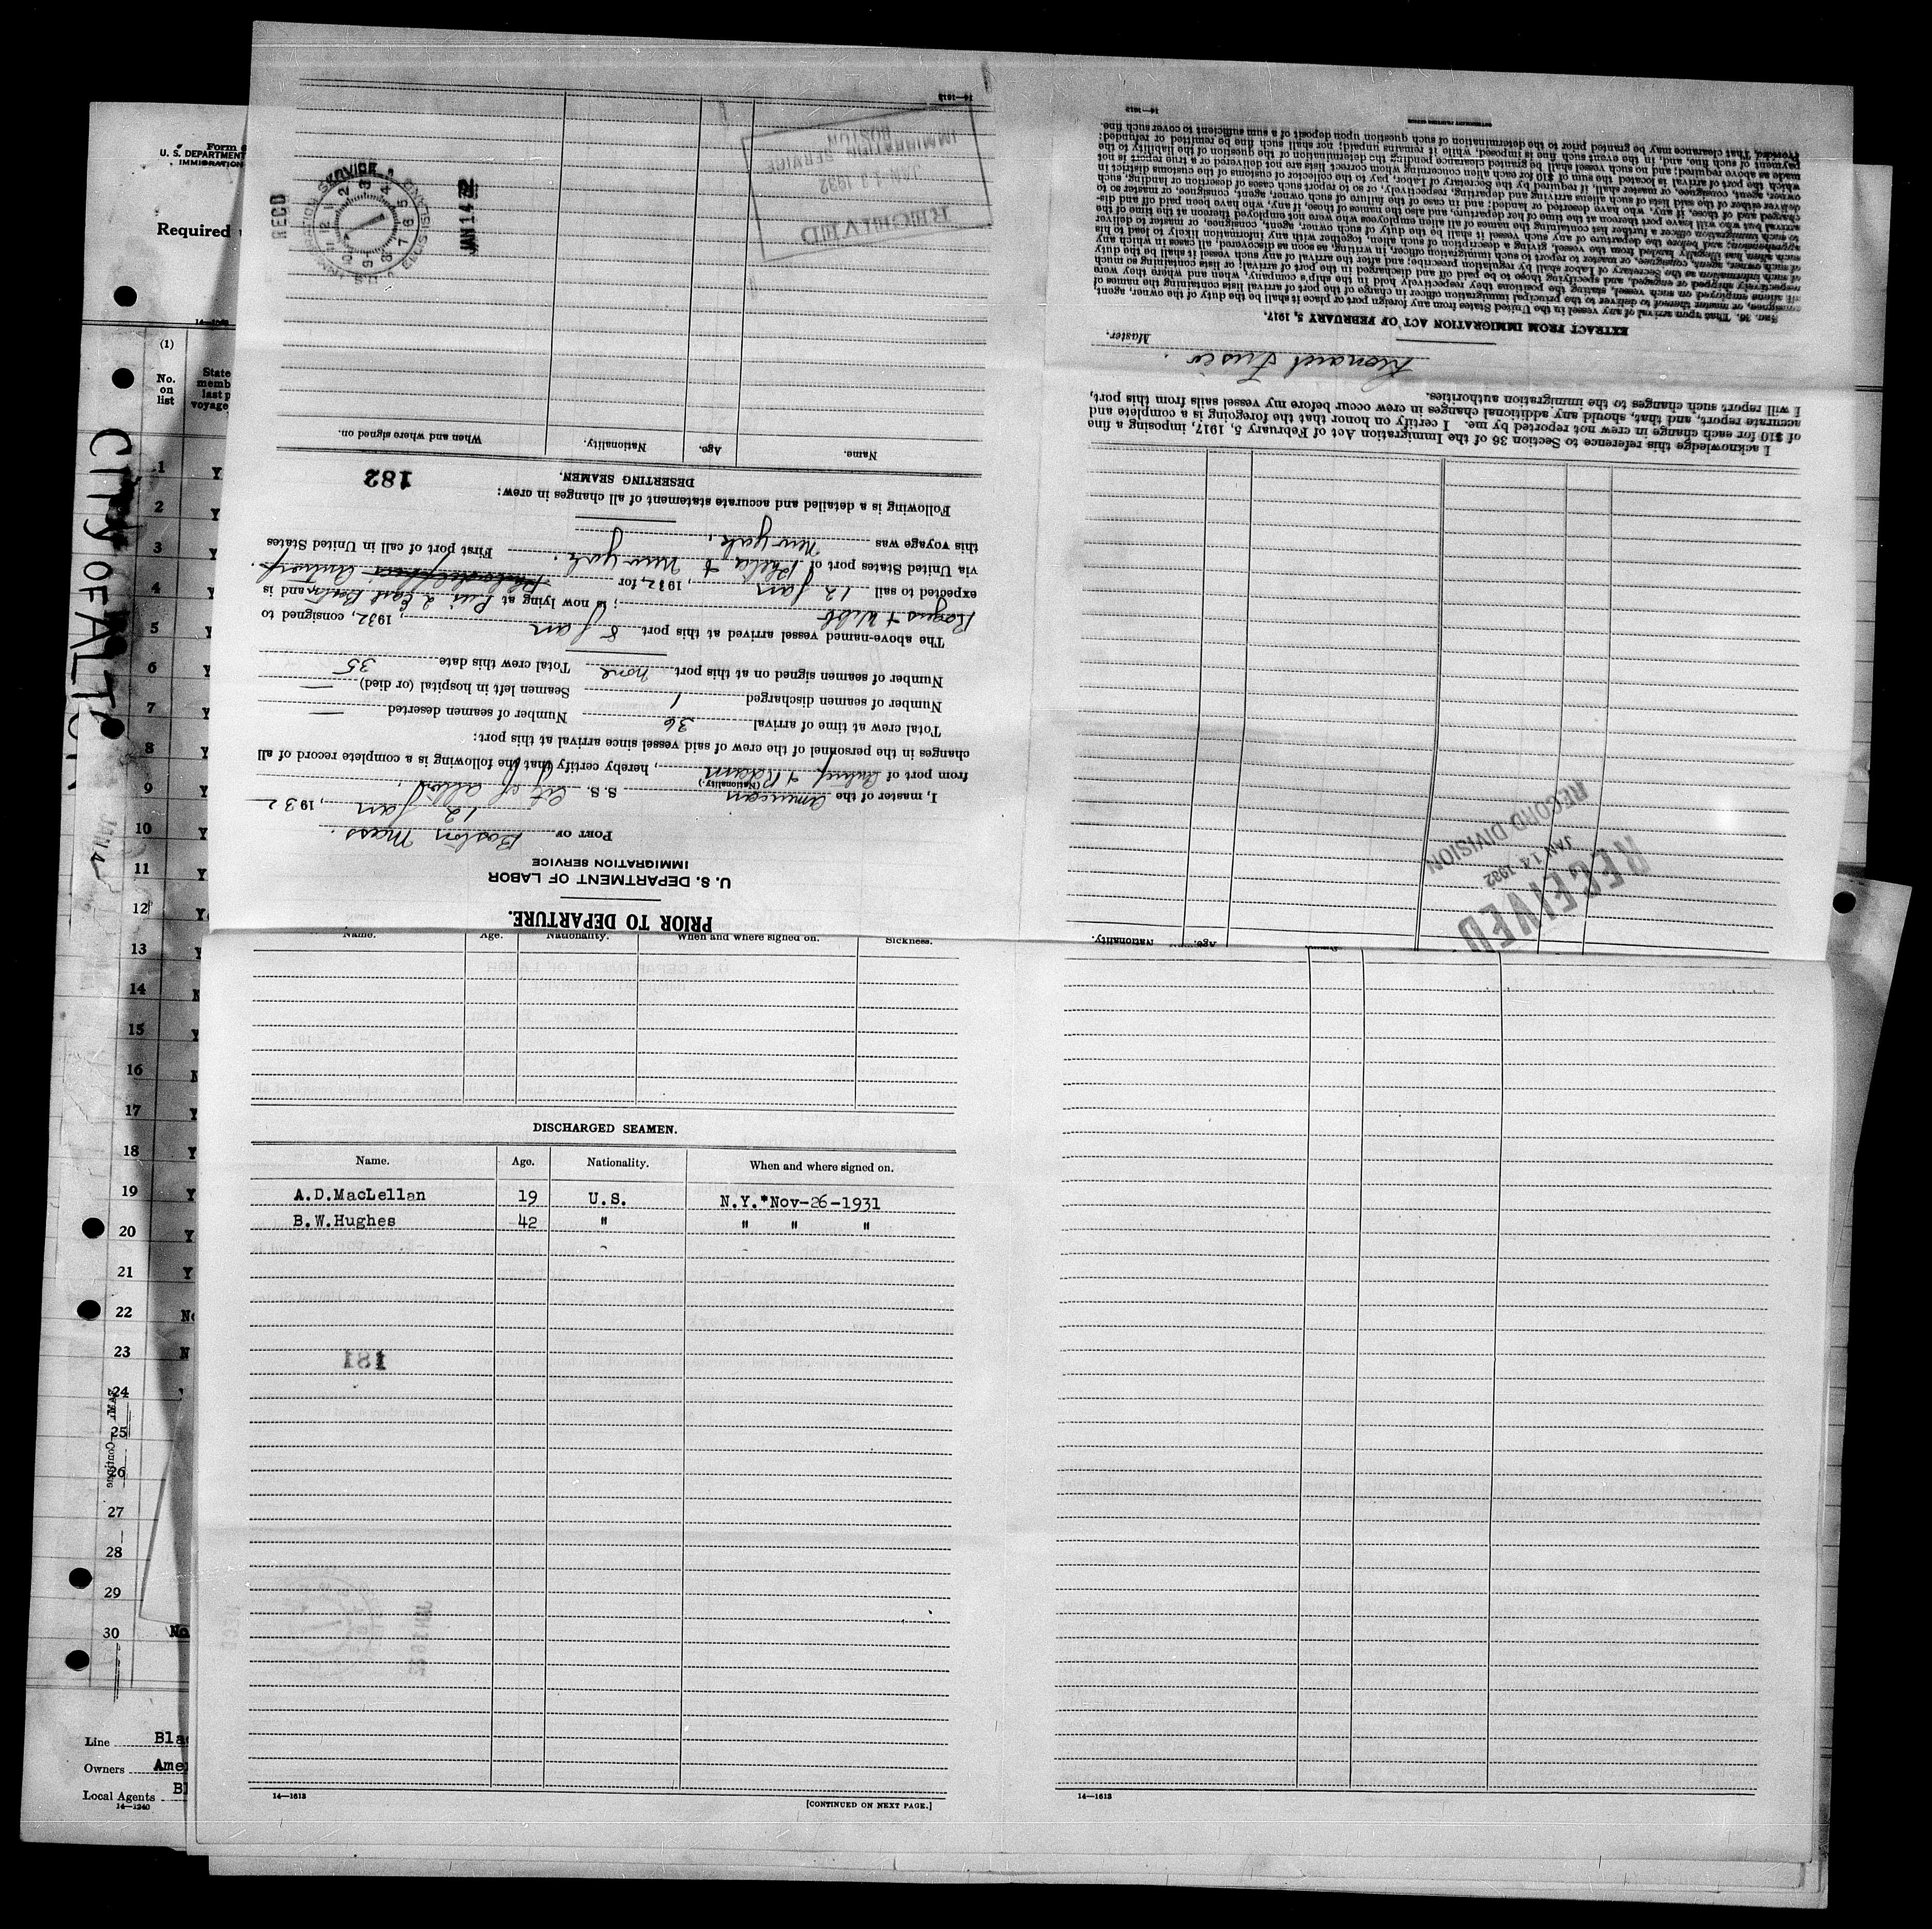 Form
U. S. DEPARTMENT
IMMIGRATION
Required
(1)
No.
on
list
State
memb
last p
voyage
CITY OF ALTON
1 Y
2 Y
3 Y
4 Y
5 Y
6 Y
7 Y
8 Y
9 Y
10 Y
11 Y
12 Y
13 Y
14 N
15 Y
16 N
17 Y
18 Y
19 Y
20 Y
21 Y
22 No
23 N
24
25
26
27
28
29
30 No
Line Bla
Owners Ame
Local Agents Bl
14—1240
PRIOR TO DEPARTURE.
U. S. DEPARTMENT OF LABOR
IMMIGRATION SERVICE
PORT OF Boston Mass.
12 Jan, 1932
I, master of the American S. S. City of Alton,
(Nationality.)
from port of Antwerp & Rdam, hereby certify that the following is a complete record of all
changes in the personnel of the crew of said vessel since arrival at this port:
Total crew at time of arrival 36 Number of seamen deserted —
Number of seamen discharged 1 Seamen left in hospital (or died) —
Number of seamen signed on at this port none Total crew this date 35
The above-named vessel arrived at this port 8 Jan, 1932, consigned to
Rogers & Webb; is now lying at Pier 2 East Boston, and is
expected to sail 12 Jan, 1932, for Philadelphia Antwerp.
via United States port of Phila & New York. First port of call in United States
this voyage was New York.
Following is a detailed and accurate statement of all changes in crew:
DESERTING SEAMEN. 182
Name. Age. Nationality. When and where signed on.
RECEIVED
JAN 13 1932
IMMIGRATION SERVICE
BOSTON
RECD
JAN 14 32
14—1613
Name. Age. Nationality.
RECEIVED
JAN 14 1932
RECORD DIVISION
I acknowledge this reference to Section 36 of the Immigration Act of February 5, 1917, imposing a fine
of $10 for each change in crew not reported by me. I certify on honor that the foregoing is a complete and
accurate report, and that, should any additional changes in crew occur before my vessel sails from this port,
I will report such changes to the immigration authorities.
Master.
EXTRACT FROM IMMIGRATION ACT OF FEBRUARY 5, 1917.
SEC. 36. That upon arrival of any vessel in the United States from any foreign port or place it shall be the duty of the owner, agent,
consignee, or master thereof to deliver to the principal immigration officer in charge of the port of arrival lists containing the names of
all aliens employed on such vessel, stating the positions they respectively hold in the ship's company, when and where they were
respectively shipped or engaged, and specifying those to be paid off and discharged in the port of arrival; or lists containing so much
of such information as the Secretary of Labor shall by regulation prescribe; and after the arrival of any such vessel it shall be the duty
of such owner, agent, consignee, or master to report to such immigration officer, in writing, as soon as discovered, all cases in which any
such alien has illegally landed from the vessel, giving a description of such alien, together with any information likely to lead to his
apprehension; and before the departure of any such vessel it shall be the duty of such owner, agent, consignee, or master to deliver
to such immigration officer a further list containing the names of all alien employees who were not employed thereon at the time of the
arrival but who will leave port thereon at the time of her departure, and also the names of those, if any, who have been paid off and dis-
charged and of those, if any, who have deserted or landed; and in case of the failure of such owner, agent, consignee, or master so to
deliver either of the said lists of such aliens arriving and departing, respectively, or so to report such cases of desertion or landing, such
owner, agent, consignee, or master shall, if required by the Secretary of Labor, pay to the collector of customs of the customs district in
which the port of arrival is located the sum of $10 for each alien concerning whom correct lists are not delivered or a true report is not
made as above required; and no such vessel shall be granted clearance pending the determination of the question of the liability to the
payment of such fine, and, in the event such fine is imposed, while it remains unpaid; nor shall such fine be remitted or refunded:
Provided, That clearance may be granted prior to the determination of such question upon deposit of a sum sufficient to cover such fine.
14—1613
Name. Age. Nationality. When and where signed on. Sickness.
DISCHARGED SEAMEN.
Name. Age. Nationality. When and where signed on.
A.D.MacLellan 19 U.S. N.Y.*Nov-26-1931
B.W.Hughes 42 " " " "
181
14—1613
[CONTINUED ON NEXT PAGE.]
14—1613